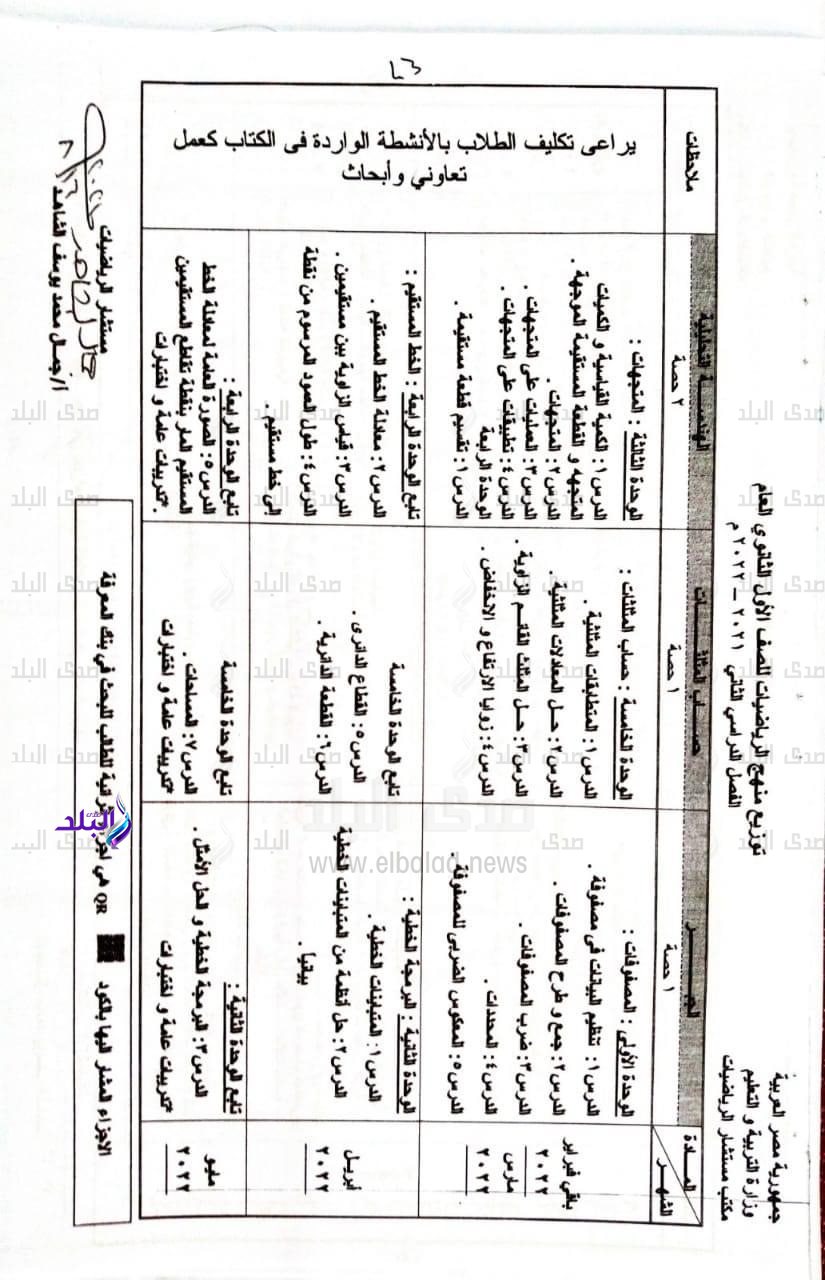 جمهورية مصر العربية
وزارة التربية و التعليم
مكتب مستشار الرياضيات
توزيع منهج الرياضيات للصف الأول الثانوي العام
الفصل الدراسي الثاني ٢٠٢١ – ٢٠٢٢ م
المــادة
الشهــر
الجبــــــر
١ حصة
حســــاب المثلثــــــات
١ حصة
الهندســـة التحليلية
٢ حصة
ملاحظات
باقي فبراير
٢٠٢٢
مارس
٢٠٢٢
الوحدة الأولى : المصفوفات :
الدرس ١: تنظيم البيانات فى مصفوفة .
الدرس ٢: جمع و طرح المصفوفات .
الدرس ٣: ضرب المصفوفات .
الدرس ٤: المحددات .
الدرس ٥: المعكوس الضربى للمصفوفة .
الوحدة الخامسة : حساب المثلثات :
الدرس ١: المتطابقات المثلثية .
الدرس ٢: حـل المعادلات المثلثية .
الدرس ٣: حـل المثلث القائـم الزاوية .
الدرس ٤: زوايا الارتفاع و الانخفاض .
الوحدة الثالثة : المتجهات :
الدرس ١: الكمية القياسية و الكميات
المتجهه و القطعة المستقيمة الموجهة .
الدرس ٢: المتجهات .
الدرس ٣: العمليات على المتجهات .
الدرس ٤: تطبيقات على المتجهات .
الوحدة الرابعة
الدرس ١: تقسيم قطعة مستقيمة .
يراعى تكليف الطلاب بالأنشطة الواردة فى الكتاب كعمل
تعاوني وأبحاث
أبريل
٢٠٢٢
الوحدة الثانية : البرمجة الخطية :
الدرس ١: المتباينات الخطية .
الدرس ٢: حل أنظمة من المتباينات الخطية
بيانيا .
تابع الوحدة الخامسة
الدرس ٥: القطاع الدائرى .
الدرس ٦: القطعة الدائرية .
تابع الوحدة الرابعة : الخط المستقيم :
الدرس ٢: معادلة الخط المستقيم .
الدرس ٣: قياس الزاوية بين مستقيمين .
الدرس ٤: طول العمود المرسوم من نقطة
إلى خط مستقيم .
مايو
٢٠٢٢
تابع الوحدة الثانية :
الدرس ٣: البرمجة الخطية و الحل الأمثل .
*تدريبات عامة و اختبارات
تابع الوحدة الخامسة
الدرس ٧: المساحات .
*تدريبات عامة و اختبارات
تابع الوحدة الرابعة :
الدرس ٥: الصورة العامة لمعادلة الخط
المستقيم المار بنقطة تقاطع المستقيمين
*تدريبات عامة و اختبارات
الاجزاء المشار اليها بالكود QR هي اجزاء إثرائية للطالب للبحث في بنك المعرفة
مستشار الرياضيات
أ/ جمـال محمد يوسف الشاهد
صدى البلد
www.elbalad.news